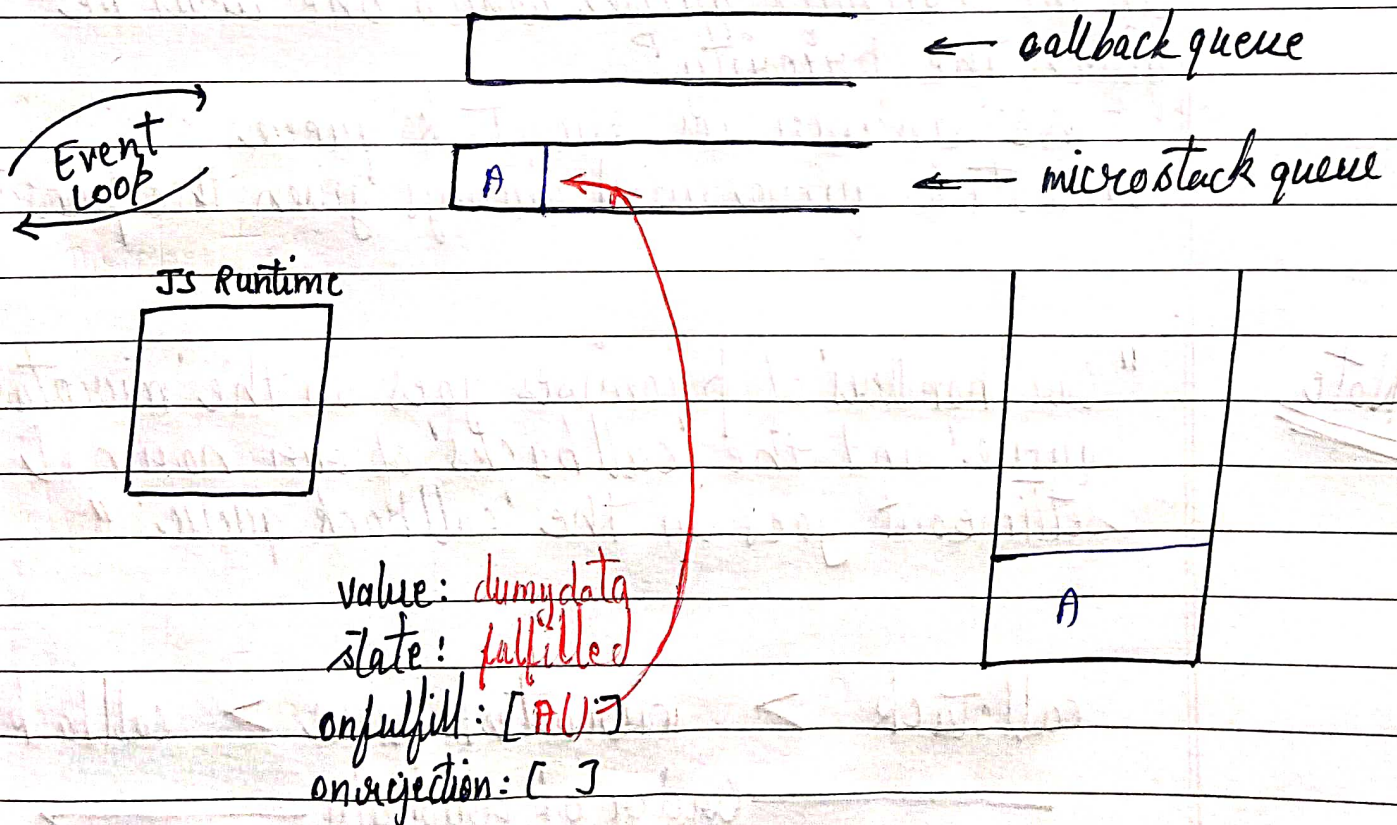 ← callback queue
Event
Loop
A
← microstack queue
JS Runtime
value: dumydata
state: fulfilled
A
onfulfill: [A()]
onrejection: [ ]